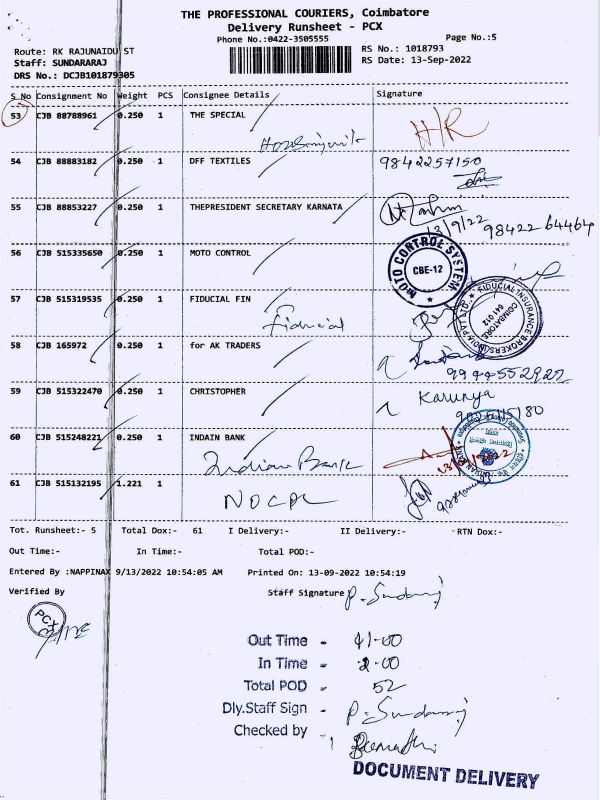 THE PROFESSIONAL COURIERS, Coimbatore
Delivery Runsheet - PCX
Phone No.:0422-3505555
Page No.:5
Route: RK RAJUNAIDU ST
RS No.: 1018793
Staff: SUNDARARAJ
RS Date: 13-Sep-2022
DRS No.: DCJB101879305
S No Consignment No Weight PCS Consignee Details Signature
53 CJB 88788961 0.250 1 THE SPECIAL H/R
54 CJB 88883182 0.250 1 DFF TEXTILES 9842257150
55 CJB 88853227 0.250 1 THEPRESIDENT SECRETARY KARNATA
13/9/22 98422 64464
56 CJB 515335650 0.250 1 MOTO CONTROL
MOTO CONTROL SYSTEM
CBE-12
57 CJB 515319535 0.250 1 FIDUCIAL FIN
Fiducial
FIDUCIAL INSURANCE BROKERS INDIA PVT. LTD.
COIMBATORE
641 012
58 CJB 165972 0.250 1 for AK TRADERS
59 CJB 515322470 0.250 1 CHRISTOPHER Karunya
60 CJB 515248221 0.250 1 INDAIN BANK
Indian Bank
61 CJB 515132195 1.221 1
NOCPL
Tot. Runsheet:- 5 Total Dox:- 61 I Delivery:- II Delivery:- RTN Dox:-
Out Time:- In Time:- Total POD:-
Entered By :NAPPINAX 9/13/2022 10:54:05 AM Printed On: 13-09-2022 10:54:19
Verified By Staff Signature P. Sundarraj
PCX
Out Time - 11-00
In Time - 2-00
Total POD - 52
Dly.Staff Sign - P. Sundarraj
Checked by -
DOCUMENT DELIVERY